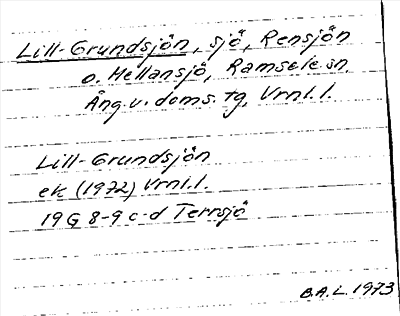 Lill-Grundsjön, sjö, Rensjön
o. Mellansjö, Ramsele sn,
Ång. v. doms. tg, Vrnl. l.
Lill-Grundsjön
ek (1972) Vrnl. l.
19 G 8-9 c-d Terrsjö
B.A.L. 1973